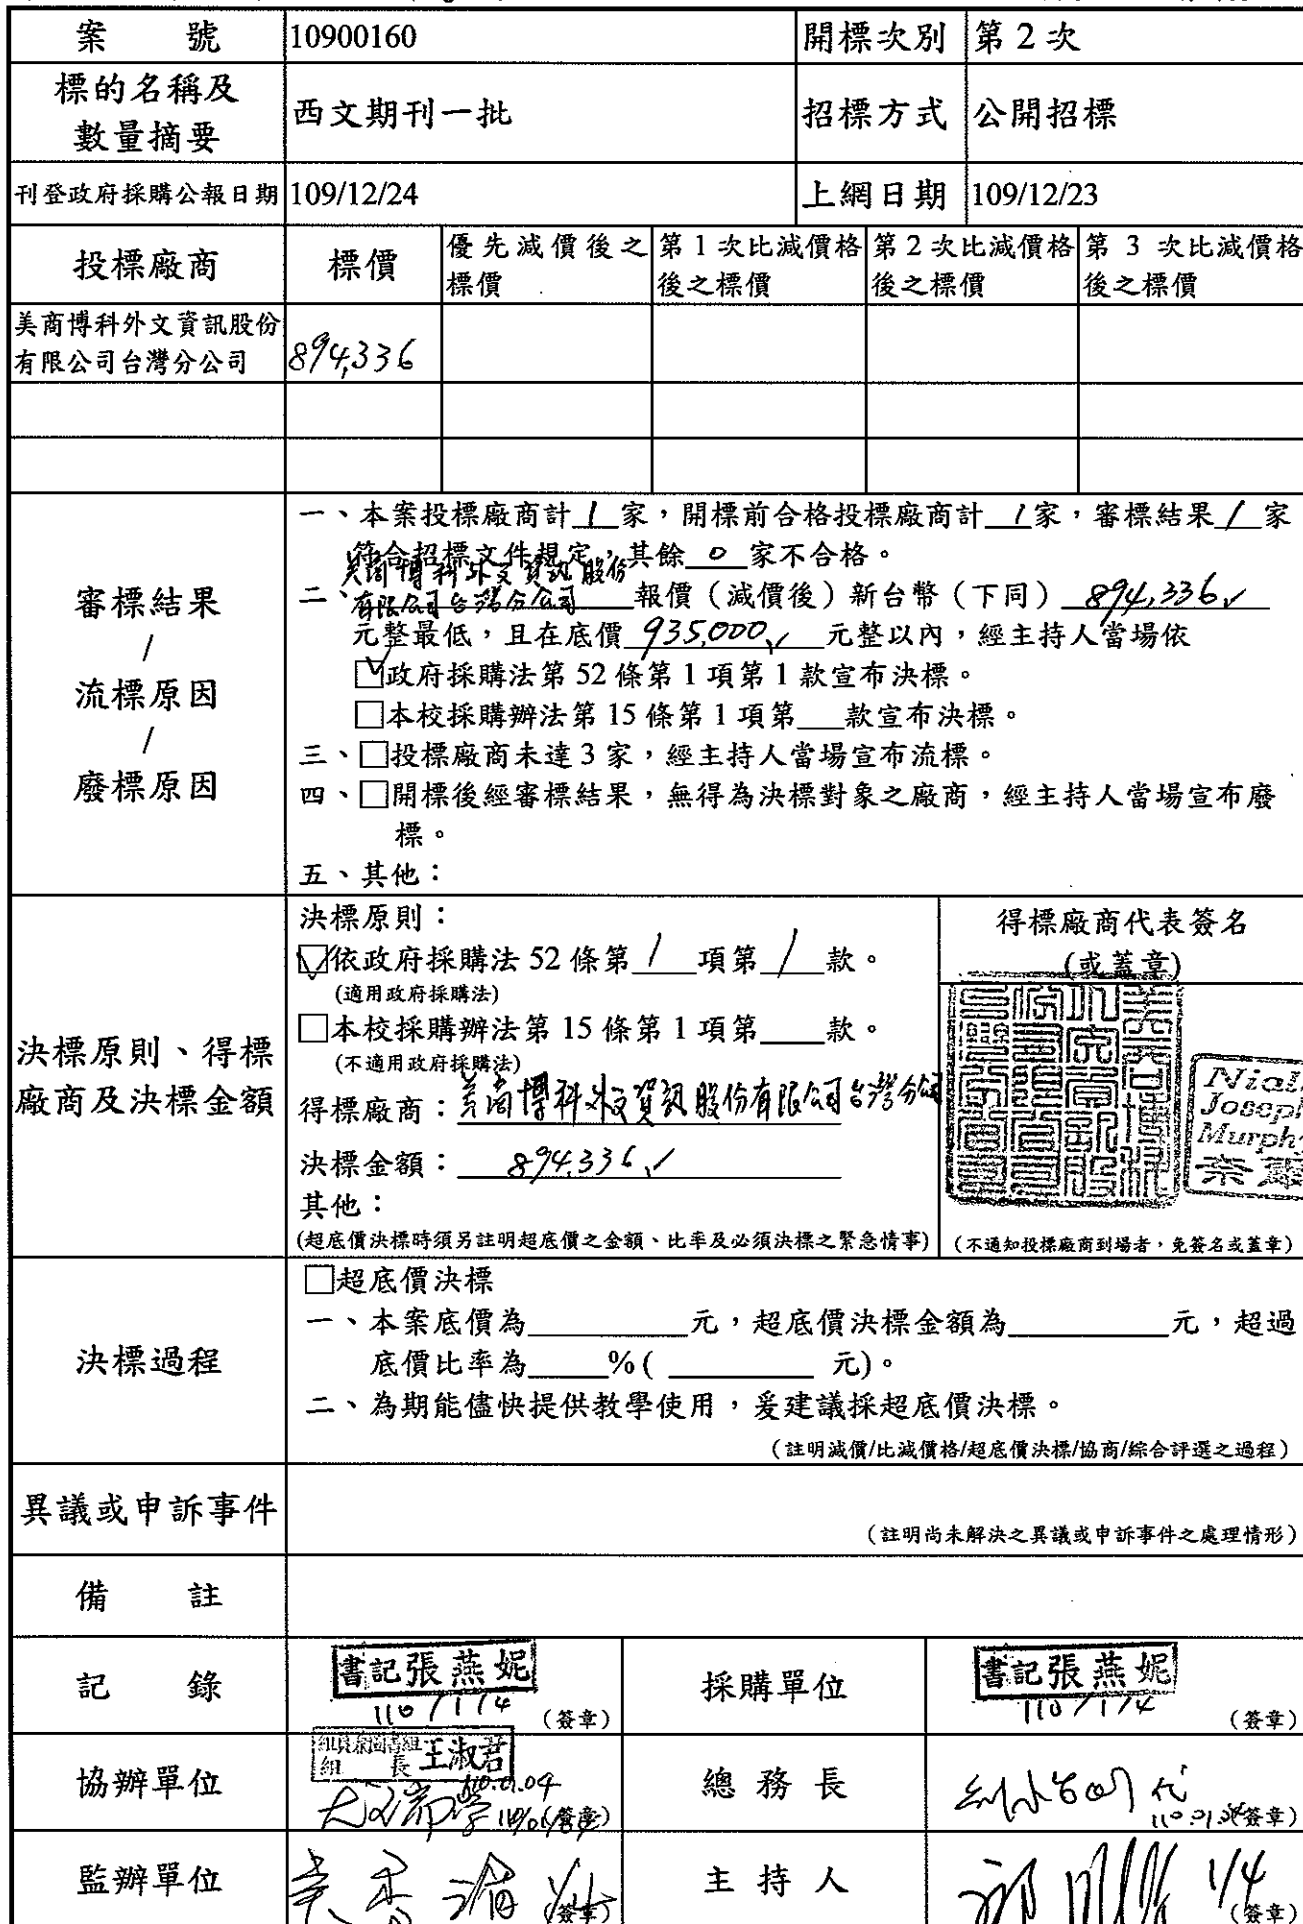 案 號 10900160 開標次別 第 2 次
標的名稱及
數量摘要 西文期刊一批 招標方式 公開招標
刊登政府採購公報日期 109/12/24 上網日期 109/12/23
投標廠商 標價 優先減價後之標價 第 1 次比減價格後之標價 第 2 次比減價格後之標價 第 3 次比減價格後之標價
美商博科外文資訊股份
有限公司台灣分公司 894,336
審標結果
/
流標原因
/
廢標原因
一、本案投標廠商計 1 家,開標前合格投標廠商計 1 家,審標結果 1 家
符合招標文件規定,其餘 0 家不合格。
美商博科外文資訊股份
二、有限公司台灣分公司 報價(減價後)新台幣(下同) 894,336
元整最低,且在底價 935,000 元整以內,經主持人當場依
☑政府採購法第 52 條第 1 項第 1 款宣布決標。
□本校採購辦法第 15 條第 1 項第___款宣布決標。
三、□投標廠商未達 3 家,經主持人當場宣布流標。
四、□開標後經審標結果,無得為決標對象之廠商,經主持人當場宣布廢
標。
五、其他:
決標原則、得標
廠商及決標金額
決標原則:
☑依政府採購法 52 條第 1 項第 1 款。
(適用政府採購法)
□本校採購辦法第 15 條第 1 項第____款。
(不適用政府採購法)
得標廠商:美商博科外文資訊股份有限公司台灣分公司
決標金額: 894,336
其他:
(超底價決標時須另註明超底價之金額、比率及必須決標之緊急情事)
得標廠商代表簽名
(或蓋章)
Joseph
(不通知投標廠商到場者,免簽名或蓋章)
決標過程
□超底價決標
一、本案底價為__________元,超底價決標金額為__________元,超過
底價比率為_____%( _________ 元)。
二、為期能儘快提供教學使用,爰建議採超底價決標。
(註明減價/比減價格/超底價決標/協商/綜合評選之過程)
異議或申訴事件
(註明尚未解決之異議或申訴事件之處理情形)
備 註
記 錄 書記張燕妮 110/1/4 (簽章) 採購單位 書記張燕妮 110/1/4 (簽章)
協辦單位 組長 王淑君 110.01.04 (簽章) 總務長 代 (簽章)
監辦單位 (簽章) 主持人 1/4 (簽章)